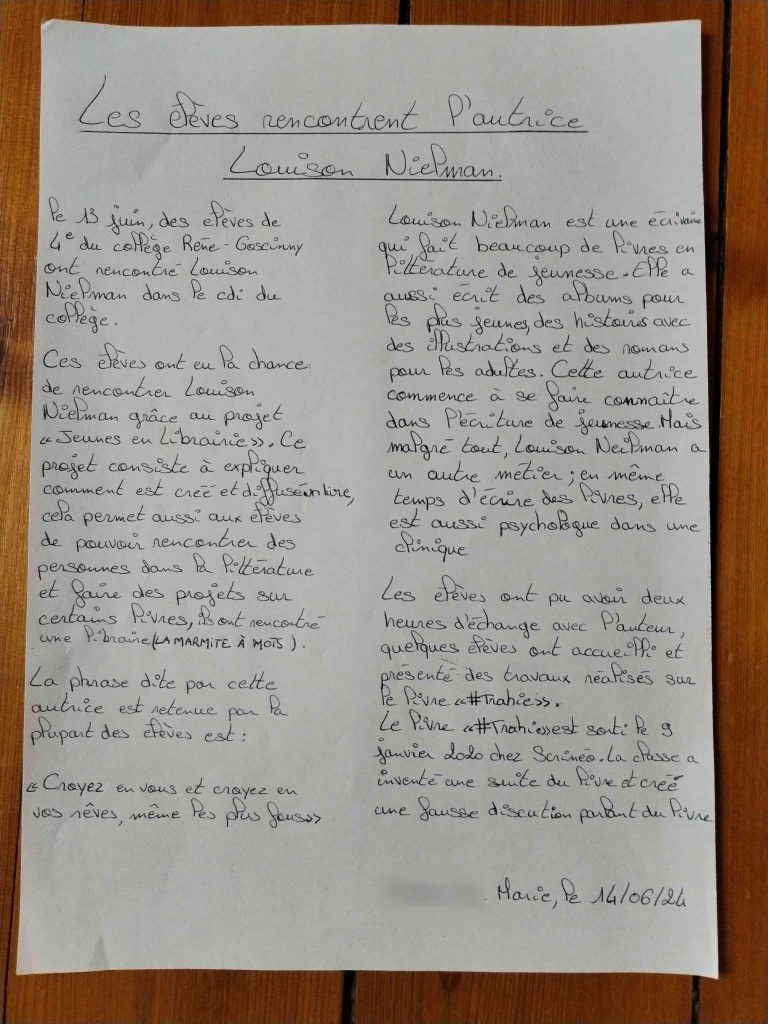 Les élèves rencontrent l'autrice
Louison Nielman.
le 13 juin, des élèves de
4e du collège René-Goscinny
ont rencontré Louison
Nielman dans le cdi du
collège.
Ces élèves ont eu la chance
de rencontrer Louison
Nielman grâce au projet
«Jeunes en Librairie». Ce
projet consiste à expliquer
comment est créé et diffusé un livre,
cela permet aussi aux élèves
de pouvoir rencontrer des
personnes dans la littérature
et faire des projets sur
certains livres, ils ont rencontré
une libraire (LA MARMITE À MOTS).
La phrase dite par cette
autrice est retenue par la
plupart des élèves est :
«Croyez en vous et croyez en
vos rêves, même les plus fous»
Louison Nielman est une écrivaine
qui fait beaucoup de livres en
littérature de jeunesse. Elle a
aussi écrit des albums pour
les plus jeunes, des histoires avec
des illustrations et des romans
pour les adultes. Cette autrice
commence à se faire connaître
dans l'écriture de jeunesse. Mais
malgré tout, Louison Neilman a
un autre métier ; en même
temps d'écrire des livres, elle
est aussi psychologue dans une
clinique
Les élèves ont pu avoir deux
heures d'échange avec l'auteur,
quelques élèves ont accueilli et
présenté des travaux réalisés sur
le livre «#Trahie».
Le livre «#Trahie» est sorti le 9
janvier 2020 chez Scrinéo. La classe a
inventé une suite du livre et créé
une fausse discution parlant du livre
Marie, le 14/06/24